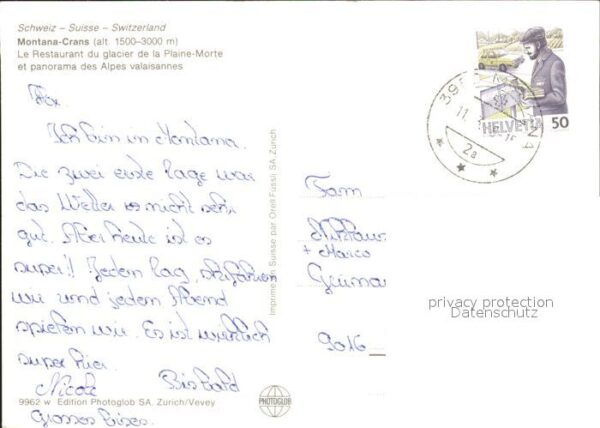 Schweiz – Suisse – Switzerland
Montana-Crans (alt. 1500–3000 m)
Le Restaurant du glacier de la Plaine-Morte
et panorama des Alpes valaisannes
Ich bin in Montana.
Die zwei erste Tage war
das Wetter so nicht sehr
gut. Aber heute ist es
super!! Jedem Tag, skifahren
wir und jedem Abend
spielen wir. Es ist wirklich
super hier.
Nicole Bis bald
9962 w Edition Photoglob SA, Zürich/Vevey
Grosses bises.
Imprimé en Suisse par Orell Füssli SA, Zürich
PHOTOGLOB
HELVETIA 50
11.
2a
Fam
+ Marco
9016
privacy protection
Datenschutz